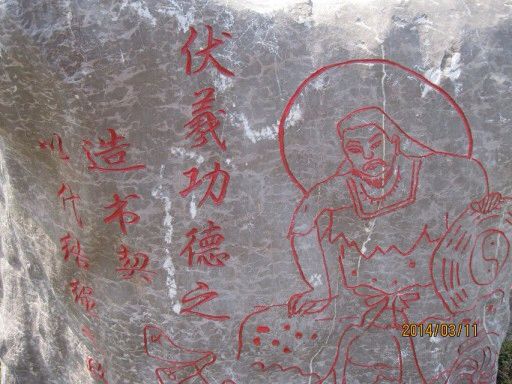 伏羲功德之
造书契
以代结绳之政
2014/03/11